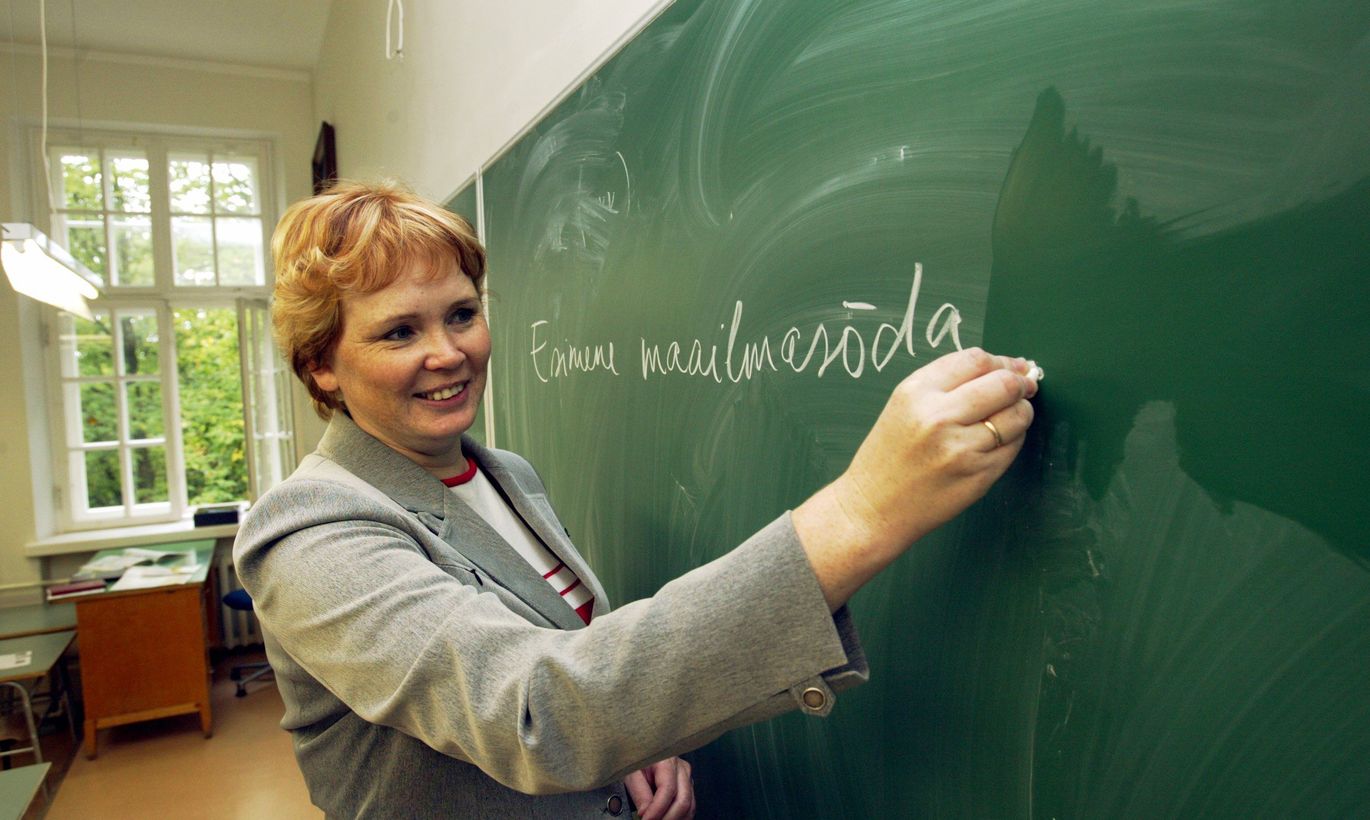 Esimene maailmasõda